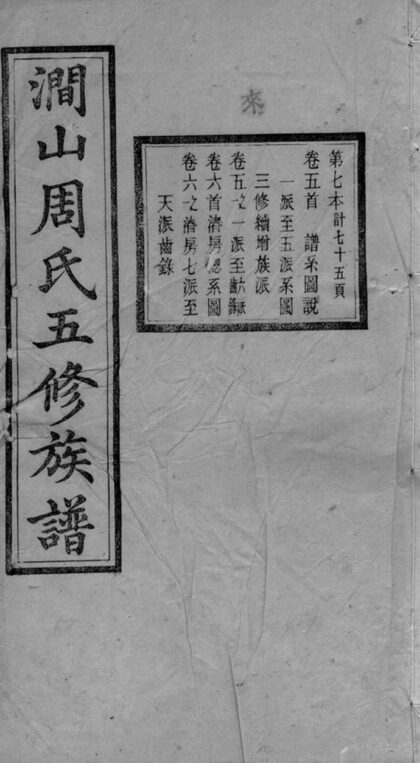 來
第七本計七十五頁
卷五首 譜系圖說
一派至五派系圖
三修續增族派
卷五之一派至齒錄
卷六首濤房總系圖
卷六之濤房七派至
天派齒錄
澗山周氏五修族譜